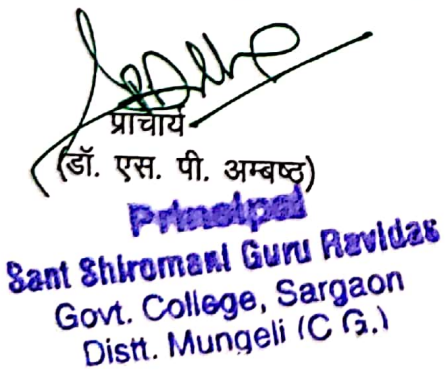 प्राचार्य
(डॉ. एस. पी. अम्बष्ठ)
Principal
Sant Shiromani Guru Ravidas
Govt. College, Sargaon
Distt. Mungeli (C G.)